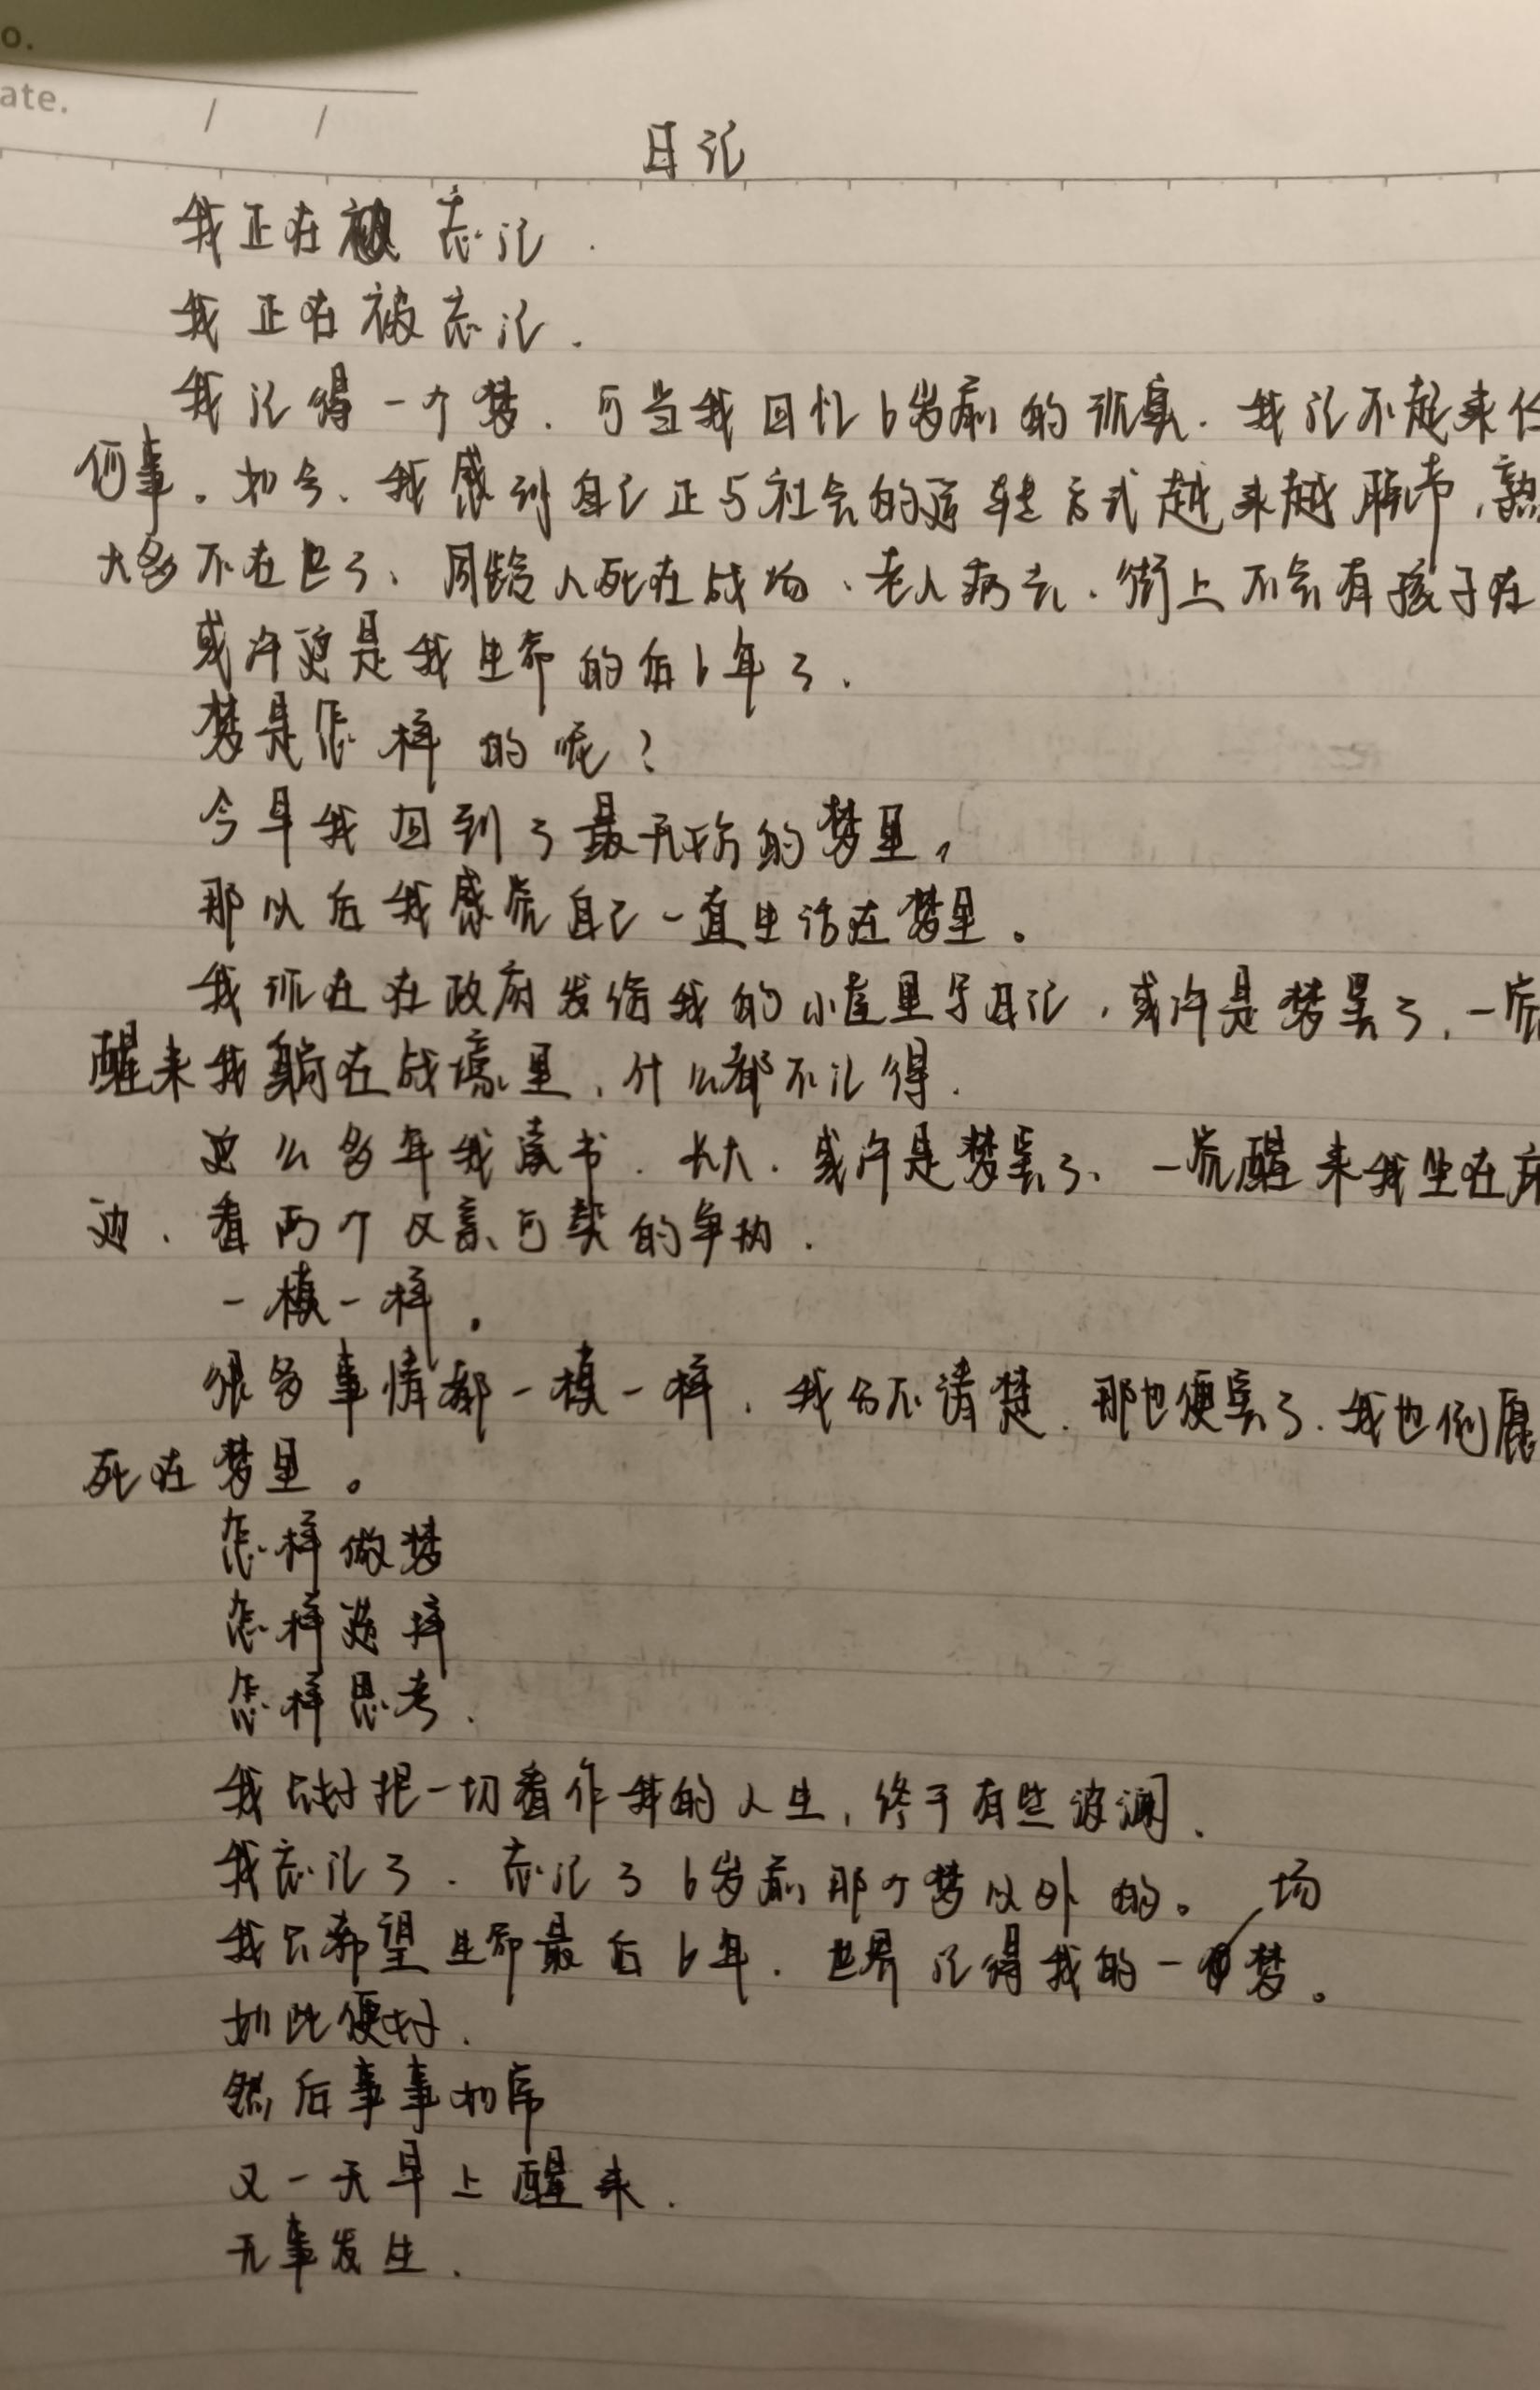 o.
ate. / /
日记
我正在被忘记.
我正在被忘记.
我记得一个梦.可当我回忆6岁前的现实.我记不起来任
何事。如今、我感到自己正与社会的运转方式越来越脱节,熟
大多不在世了、同龄人死在战场、老人病去.街上不会有孩子在
或许这是我生命的后6年了.
梦是怎样的呢?
今早我回到了最无拘的梦里,
那以后我感觉自己一直生活在梦里。
我现在在政府发给我的小屋里写日记,或许是梦罢了,一觉
醒来我躺在战壕里,什么都不记得.
这么多年我读书.长大.或许是梦罢了、一觉醒来我坐在床
边、看两个父亲可笑的争执.
一模一样.
很多事情都一模一样.我分不清楚.那也便罢了.我也倒愿
死在梦里。
怎样做梦
怎样选择
怎样思考.
我只好把一切看作我的人生,终于有些波澜.
我忘记了.忘记了6岁前那个梦以外的。
我只希望生命最后6年.世界记得我的一场梦。
如此便好.
然后事事如常
又一天早上醒来.
无事发生.